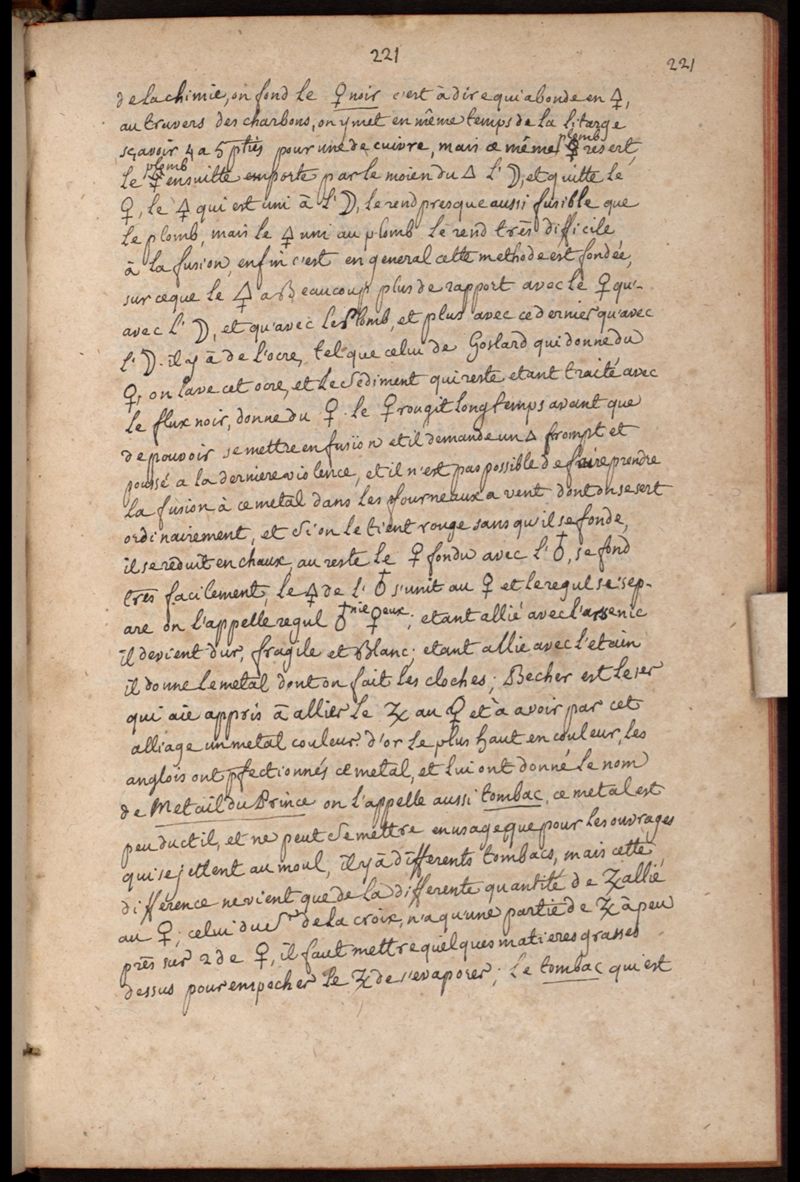 221
221
de la chimie, on fond le ♀ noir c'est à dire qui abonde en 🜍,
au travers des charbons, on y met en même temps de la litarge
sçavoir 4 a 5 pties pour une de cuivre, mais ce même plomb ressert,
le plomb ensuitte emporte par le moien du 🜂 l'☽, et quitte le
♀, le 🜍 qui est uni à l'☽, le rend presque aussi fusible que
le plomb, mais le 🜍 uni au plomb le rend très difficile
à la fusion, enfin c'est en general cette methode est fondée,
sur ce que le 🜍 a Beaucoup plus de rapport avec le ♀ qu'-
avec l'☽, et qu'avec le Plomb, et plus avec ce dernier qu'avec
l'☽. il y à de l'ocre, tel que celui de Goslard qui donne du
♀, on lave cet ocre, et le Sédiment qui reste etant traité avec
le flux noir, donne du ♀. le ♀ rougit longtemps avant que
de pouvoir se mettre en fusion et il demande un 🜂 prompt et
poussé a la derniere violence, et il n'est pas possible de faire prendre
la fusion à ce metal dans les fourneaux a vent dont on se sert
ordinairement, et Si on le tient rouge sans qu'il se fonde,
il se réduit en chaux, au reste le ♀ fondu avec l'♁, se fond
très facilement, le 🜍 de l'♁ s'unit au ♀ et le regul se sep-
are on l'appelle regul ♁nié ♀eux; etant allié avec l'arsenic
il devient dur, fragile et Blanc; etant allié avec l'etain
il donne le metal dont on fait les cloches; Becher est le 1er
qui aie appris à allier le Zx au ♀ et à avoir par cet
alliage un metal couleur d'or le plus haut en couleur, les
anglois ont pfectionnés ce metal, et lui ont donné le nom
de Metail du Prince on l'appelle aussi tombac, ce metal est
peu ductil, et ne peut Se mettre en usage que pour les ouvrages
qui se jettent au moul, il y à differents tombacs, mais cette
différence ne vient que de la différente quantité de Zx allié
au ♀; celui du Sr de la croix, n'a qu'une partie de Zx à peu
près sur 2 de ♀, il faut mettre quelques matieres grasses
dessus pour empecher le Zx de s'evaporer; le tombac qui est